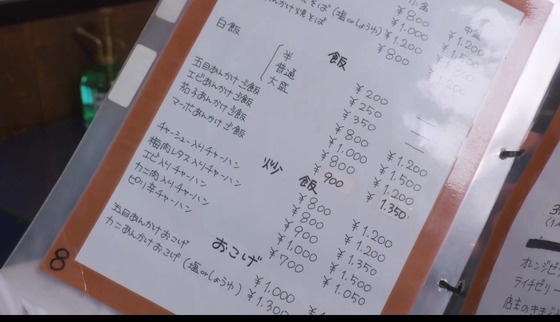 小盆
¥800
¥1,000 ¥1,200
¥1,200
¥800
飯
白飯
半 ¥200
普通 ¥250
大盛 ¥350
五目あんかけご飯 ¥800 ¥1,200
エビあんかけご飯 ¥1,000 ¥1,500
茄子あんかけご飯 ¥800 ¥1,200
マーボあんかけご飯 ¥900 1,350
炒飯
チャーシュー入りチャーハン ¥800 ¥1,200
梅肉レタス入りチャーハン ¥800 ¥1,200
エビ入りチャーハン ¥900 ¥1,350
カニ肉入りチャーハン ¥1,000 ¥1,500
ピリ辛チャーハン ¥700 ¥1,050
おこげ
五目あんかけおこげ ¥1,000
カニあんかけおこげ (塩orしょうゆ) ¥1,300
8
ライチゼリー